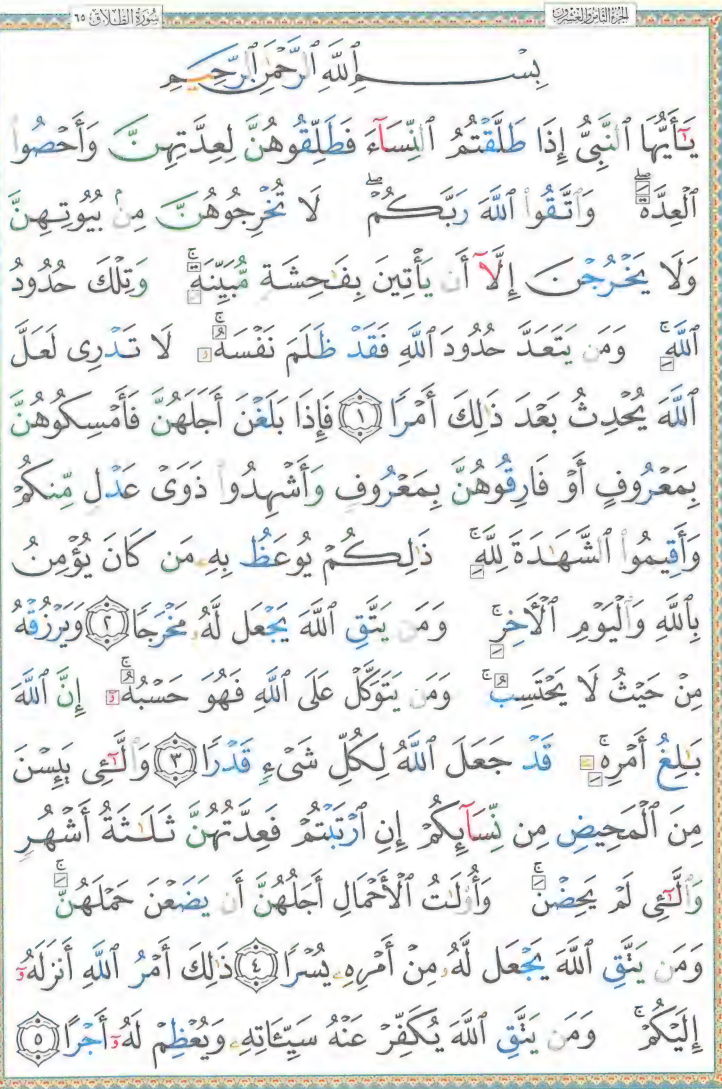 الجزء الثامن والعشرون
سورة الطلاق ٦٥
بِسْمِ ٱللَّهِ ٱلرَّحْمَٰنِ ٱلرَّحِيمِ
يَٰٓأَيُّهَا ٱلنَّبِىُّ إِذَا طَلَّقْتُمُ ٱلنِّسَآءَ فَطَلِّقُوهُنَّ لِعِدَّتِهِنَّ وَأَحْصُوا۟
ٱلْعِدَّةَ ۖ وَٱتَّقُوا۟ ٱللَّهَ رَبَّكُمْ ۖ لَا تُخْرِجُوهُنَّ مِنۢ بُيُوتِهِنَّ
وَلَا يَخْرُجْنَ إِلَّآ أَن يَأْتِينَ بِفَٰحِشَةٍ مُّبَيِّنَةٍ ۚ وَتِلْكَ حُدُودُ
ٱللَّهِ ۚ وَمَن يَتَعَدَّ حُدُودَ ٱللَّهِ فَقَدْ ظَلَمَ نَفْسَهُۥ ۚ لَا تَدْرِى لَعَلَّ
ٱللَّهَ يُحْدِثُ بَعْدَ ذَٰلِكَ أَمْرًا ١ فَإِذَا بَلَغْنَ أَجَلَهُنَّ فَأَمْسِكُوهُنَّ
بِمَعْرُوفٍ أَوْ فَارِقُوهُنَّ بِمَعْرُوفٍ وَأَشْهِدُوا۟ ذَوَىْ عَدْلٍ مِّنكُمْ
وَأَقِيمُوا۟ ٱلشَّهَٰدَةَ لِلَّهِ ۚ ذَٰلِكُمْ يُوعَظُ بِهِۦ مَن كَانَ يُؤْمِنُ
بِٱللَّهِ وَٱلْيَوْمِ ٱلْأَخِرِ ۚ وَمَن يَتَّقِ ٱللَّهَ يَجْعَل لَّهُۥ مَخْرَجًا ٢ وَيَرْزُقْهُ
مِنْ حَيْثُ لَا يَحْتَسِبُ ۚ وَمَن يَتَوَكَّلْ عَلَى ٱللَّهِ فَهُوَ حَسْبُهُۥٓ ۚ إِنَّ ٱللَّهَ
بَٰلِغُ أَمْرِهِۦ ۚ قَدْ جَعَلَ ٱللَّهُ لِكُلِّ شَىْءٍ قَدْرًا ٣ وَٱلَّٰٓـِٔى يَئِسْنَ
مِنَ ٱلْمَحِيضِ مِن نِّسَآئِكُمْ إِنِ ٱرْتَبْتُمْ فَعِدَّتُهُنَّ ثَلَٰثَةُ أَشْهُرٍ
وَٱلَّٰٓـِٔى لَمْ يَحِضْنَ ۚ وَأُو۟لَٰتُ ٱلْأَحْمَالِ أَجَلُهُنَّ أَن يَضَعْنَ حَمْلَهُنَّ ۚ
وَمَن يَتَّقِ ٱللَّهَ يَجْعَل لَّهُۥ مِنْ أَمْرِهِۦ يُسْرًا ٤ ذَٰلِكَ أَمْرُ ٱللَّهِ أَنزَلَهُۥٓ
إِلَيْكُمْ ۚ وَمَن يَتَّقِ ٱللَّهَ يُكَفِّرْ عَنْهُ سَيِّـَٔاتِهِۦ وَيُعْظِمْ لَهُۥٓ أَجْرًا ٥